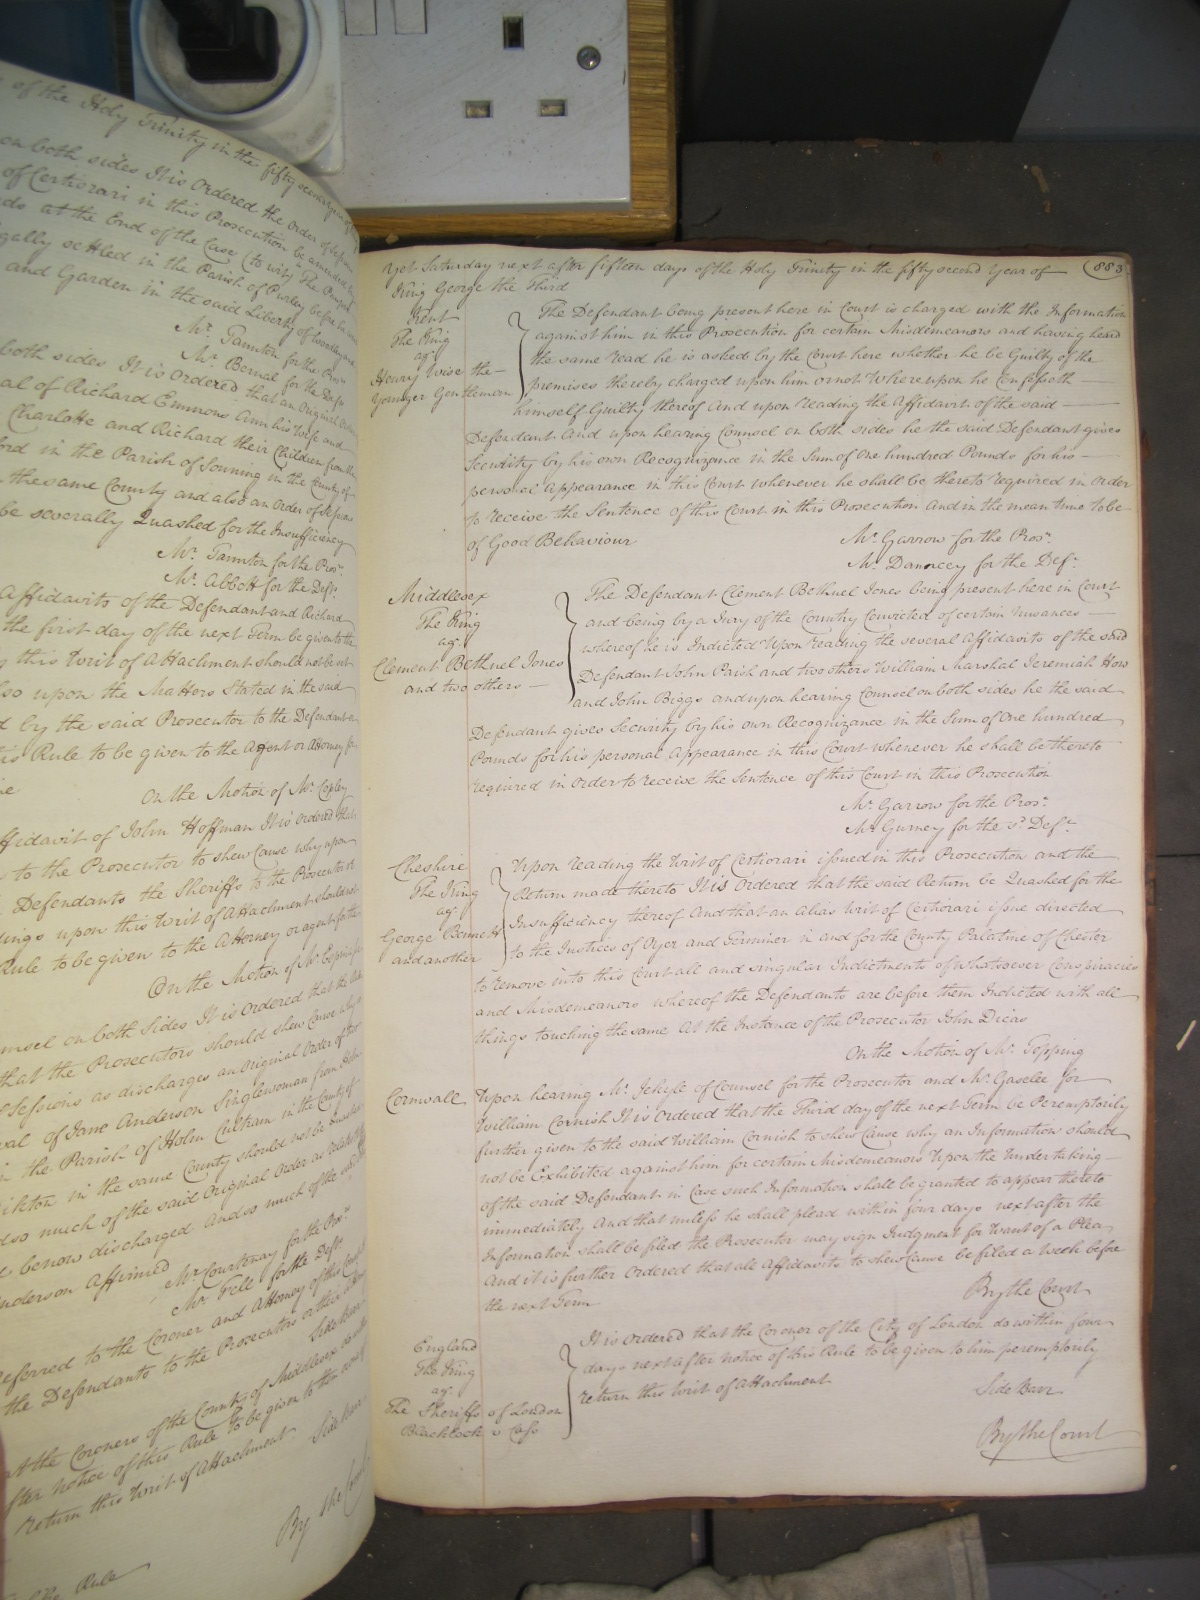 of the Holy Trinity in the fifty second year of
on both sides It is Ordered the Order of Sessions
of Certiorari in this Prosecution be amended by
at the End of the Case (to wit) The Pauper
gally settled in the Parish of Purley before he
and Garden in the said Liberty of
Mr. Taunton for the Prosr.
Mr. Bernal for the Deft.
both sides It is Ordered that an Original Order
al of Richard Emmons Ann his Wife and
Charlotte and Richard their Children from the
ord in the Parish of Sonning in the County of
the same County and also an Order of Sessions
be severally Quashed for the Insufficiency
Mr. Taunton for the Prosr.
Mr. Abbott for the Defts.
Affidavits of the Defendant and Richard
the first day of the next Term be given to the
this Writ of Attachment should not be set
so upon the Matters Stated in the said
d by the said Prosecutor to the Defendant
is Rule to be given to the Agent or Attorney for
On the Motion of Mr. Copley
ffidavit of John Hoffman It is Ordered that
to the Prosecutor to shew Cause why upon
Defendants the Sheriffs to the Prosecutor
dings upon this Writ of Attachment should not
Rule to be given to the Attorney or agent for the
On the Motion of Mr. Espinasse
unsel on both Sides It is Ordered that the
that the Prosecutors should shew Cause why
f Sessions as discharges an Original Order of
val of Jane Anderson Singlewoman from Holm
in the Parish of Holm Cultram in the County of
in the same County should not be Quashed
so much of the said Original Order as
be now discharged And so much of the
nderson Affirmed
Mr. Courtenay for the Prosr.
Mr. Fell for the Deft.
eferred to the Coroner and Attorney of this Court
the Defendants to the Prosecutors or their
Side Barr
at the Coroners of the County of Middlesex do
fter notice of this Rule to be given to
return this Writ of Attachment Side Barr
By the Court
Rule
Yet Saturday next after fifteen days of the Holy Trinity in the fifty second Year of 883
King George the third
Kent
The King
agt.
Henry Wise the
Younger Gentleman
The Defendant being present here in Court is charged with the Information
against him in this Prosecution for certain Misdemeanors and having heard
the same read he is asked by the Court here whether he be Guilty of the
premises thereby charged upon him or not Whereupon he Confesseth
himself Guilty thereof And upon reading the Affidavit of the said
Defendant And upon hearing Counsel on both sides he the said Defendant gives
Security by his own Recognizance in the Sum of One hundred Pounds for his
personal Appearance in this Court whenever he shall be thereto required in Order
to receive the Sentence of this Court in this Prosecution And in the mean time to be
of Good Behaviour
Mr. Garrow for the Prosr.
Mr. Dauncey for the Deft.
Middlesex
The King
agt.
Clement Bethuel Jones
and two others
The Defendant Clement Bethuel Jones being present here in Court
and being by a Jury of the Country Convicted of certain nusances
whereof he is Indicted Upon reading the several Affidavits of the said
Defendant John Parish and two others William Marshal Jeremiah Hors
and John Biggs and upon hearing Counsel on both sides he the said
Defendant gives Security by his own Recognizance in the Sum of One hundred
Pounds for his personal Appearance in this Court whenever he shall be thereto
required in Order to receive the Sentence of this Court in this Prosecution
Mr. Garrow for the Prosr.
Mr. Gurney for the sd. Deft.
Cheshire
The King
agt.
George Bennett
and another
Upon reading the Writ of Certiorari issued in this Prosecution and the
Return made thereto It is Ordered that the said Return be Quashed for the
Insufficiency thereof And that an Alias Writ of Certiorari issue directed
to the Justices of Oyer and Terminer in and for the County Palatine of Chester
to remove into this Court all and singular Indictments of whatsoever Conspiracies
and Misdemeanors whereof the Defendants are before them Indicted with all
things touching the same At the Instance of the Prosecutor John Dicas
On the Motion of Mr. Topping
Cornwall
Upon hearing Mr. Jekyll of Counsel for the Prosecutor and Mr. Gaselee for
William Cornish It is Ordered that the Third day of the next Term be Peremptorily
further given to the said William Cornish to shew Cause why an Information should
not be Exhibited against him for certain Misdemeanors Upon the Undertaking
of the said Defendant in Case such Information shall be granted to appear thereto
immediately And that unless he shall plead within four days next after the
Information shall be filed the Prosecutor may sign Judgment for Want of a Plea
And it is further Ordered that all Affidavits to shew Cause be filed a Week before
the next Term
By the Court
England
The King
agt.
The Sheriffs of London
It is Ordered that the Coroner of the City of London do within four
days next after notice of this Rule to be given to him peremptorily
return this Writ of Attachment
Side Barr
By the Court